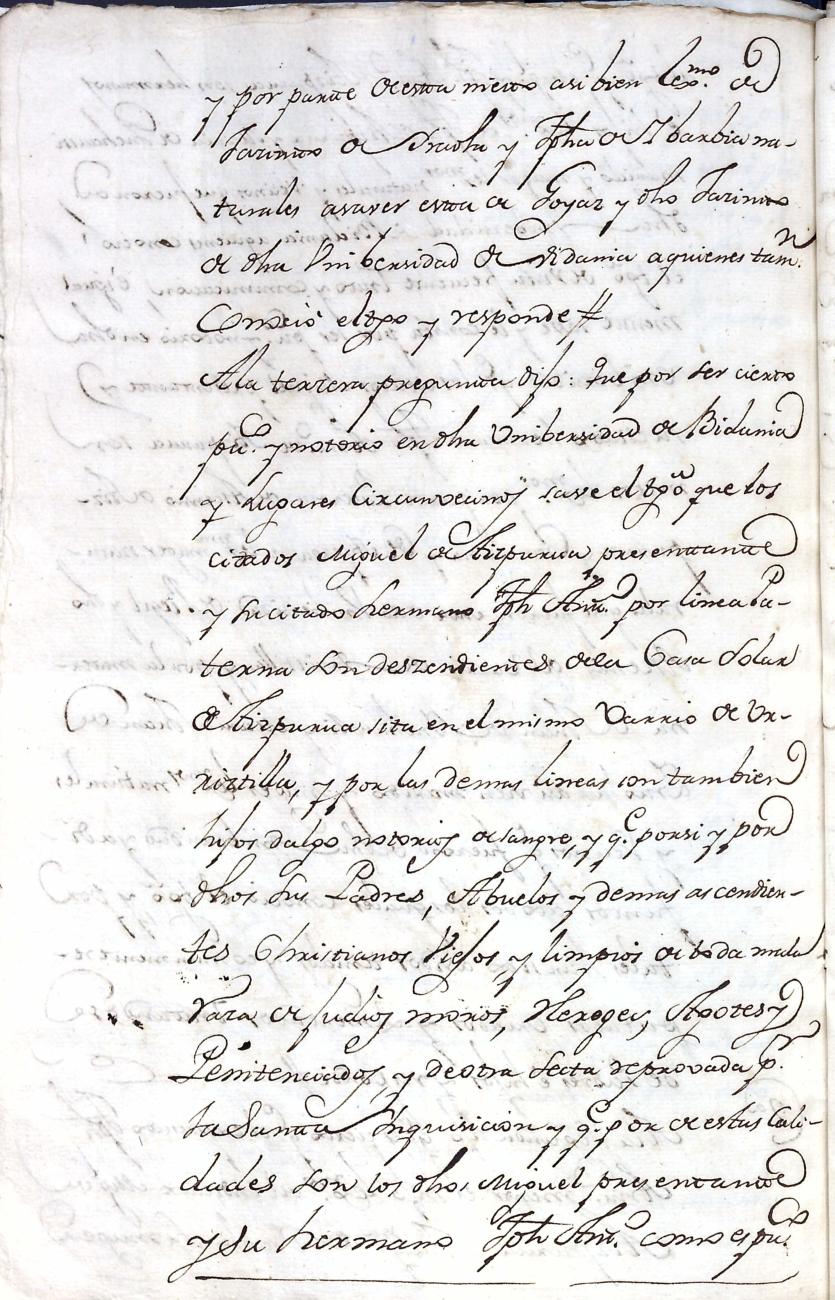 y por parte de esta nieto asi bien lexmo. de
Jazinto de Araola y Jpha de Ybarbia na-
turales asaver esta de Goyaz y dho Jazinto
de dha Unibersidad de Vidania a quienes tamn.
Conocio el tgo y responde #
A la terzera pregunta dijo: Que por ser cierto
puco. y notorio en dha Unibersidad de Bidania
y Lugares Circunvecinos save el tgo que los
citados Miguel de Aizpurua presentante
y su citado hermano Jph Anto. por linea Pa-
terna son deszendientes de la Casa Solar
de Aizpurua sita en el mismo Varrio de Ur-
riztilla, y por las demas lineas son tambien
hijos dalgo notorios de sangre, y qe. por si y por
dhos sus Padres, Abuelos y demas ascendien-
tes Christianos Viejos y limpios de toda mala
Raza de Judios moros, Hereges, Agotes y
Penitenciados, y de otra Secta reprovada pr.
la Santa Inquisicion y qe. por de estas Cali-
dades son los dhos Miguel presentante
y su hermano Jph Anto. como es puco.